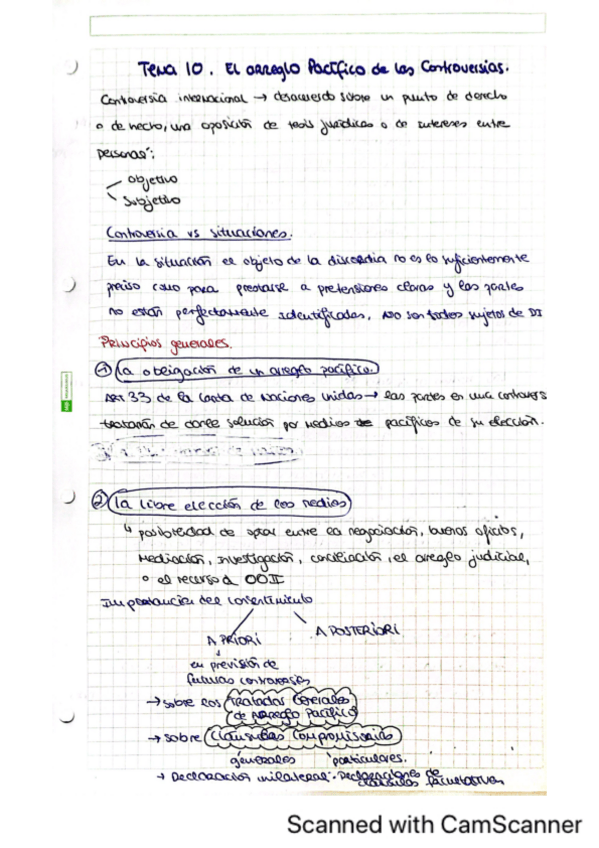 Tema 10. El arreglo Pacífico de las Controversias.
Controversia internacional → desacuerdo sobre un punto de derecho
o de hecho, una oposición de tesis jurídicas o de intereses entre
personas":
Objetivo
Subjetivo
Controversia vs situaciones.
En la situación el objeto de la discordia no es lo suficientemente
preciso como para prestarse a pretensiones claras y las partes
no están perfectamente identificadas, no son todos sujetos de DI
Principios generales.
① La obligación de un arreglo pacífico.
Art 33 de la Carta de Naciones Unidas → las partes en una controvers
tratarán de darle solución por medios de pacíficos de su elección.
② La libre elección de los medios
↳ posibilidad de optar entre la negociación, buenos oficios,
mediación, investigación, conciliación, el arreglo judicial,
o el recurso a OOII
Importancia del consentimiento
A PRIORI A POSTERIORI
↳ en previsión de
futuras controversias
→ sobre los Tratados Generales
de Arreglo Pacífico
→ sobre Cláusulas Compromisorias
generales particulares.
→ Declaración unilateral. Declaraciones de
cláusulas facultativas
Scanned with CamScanner